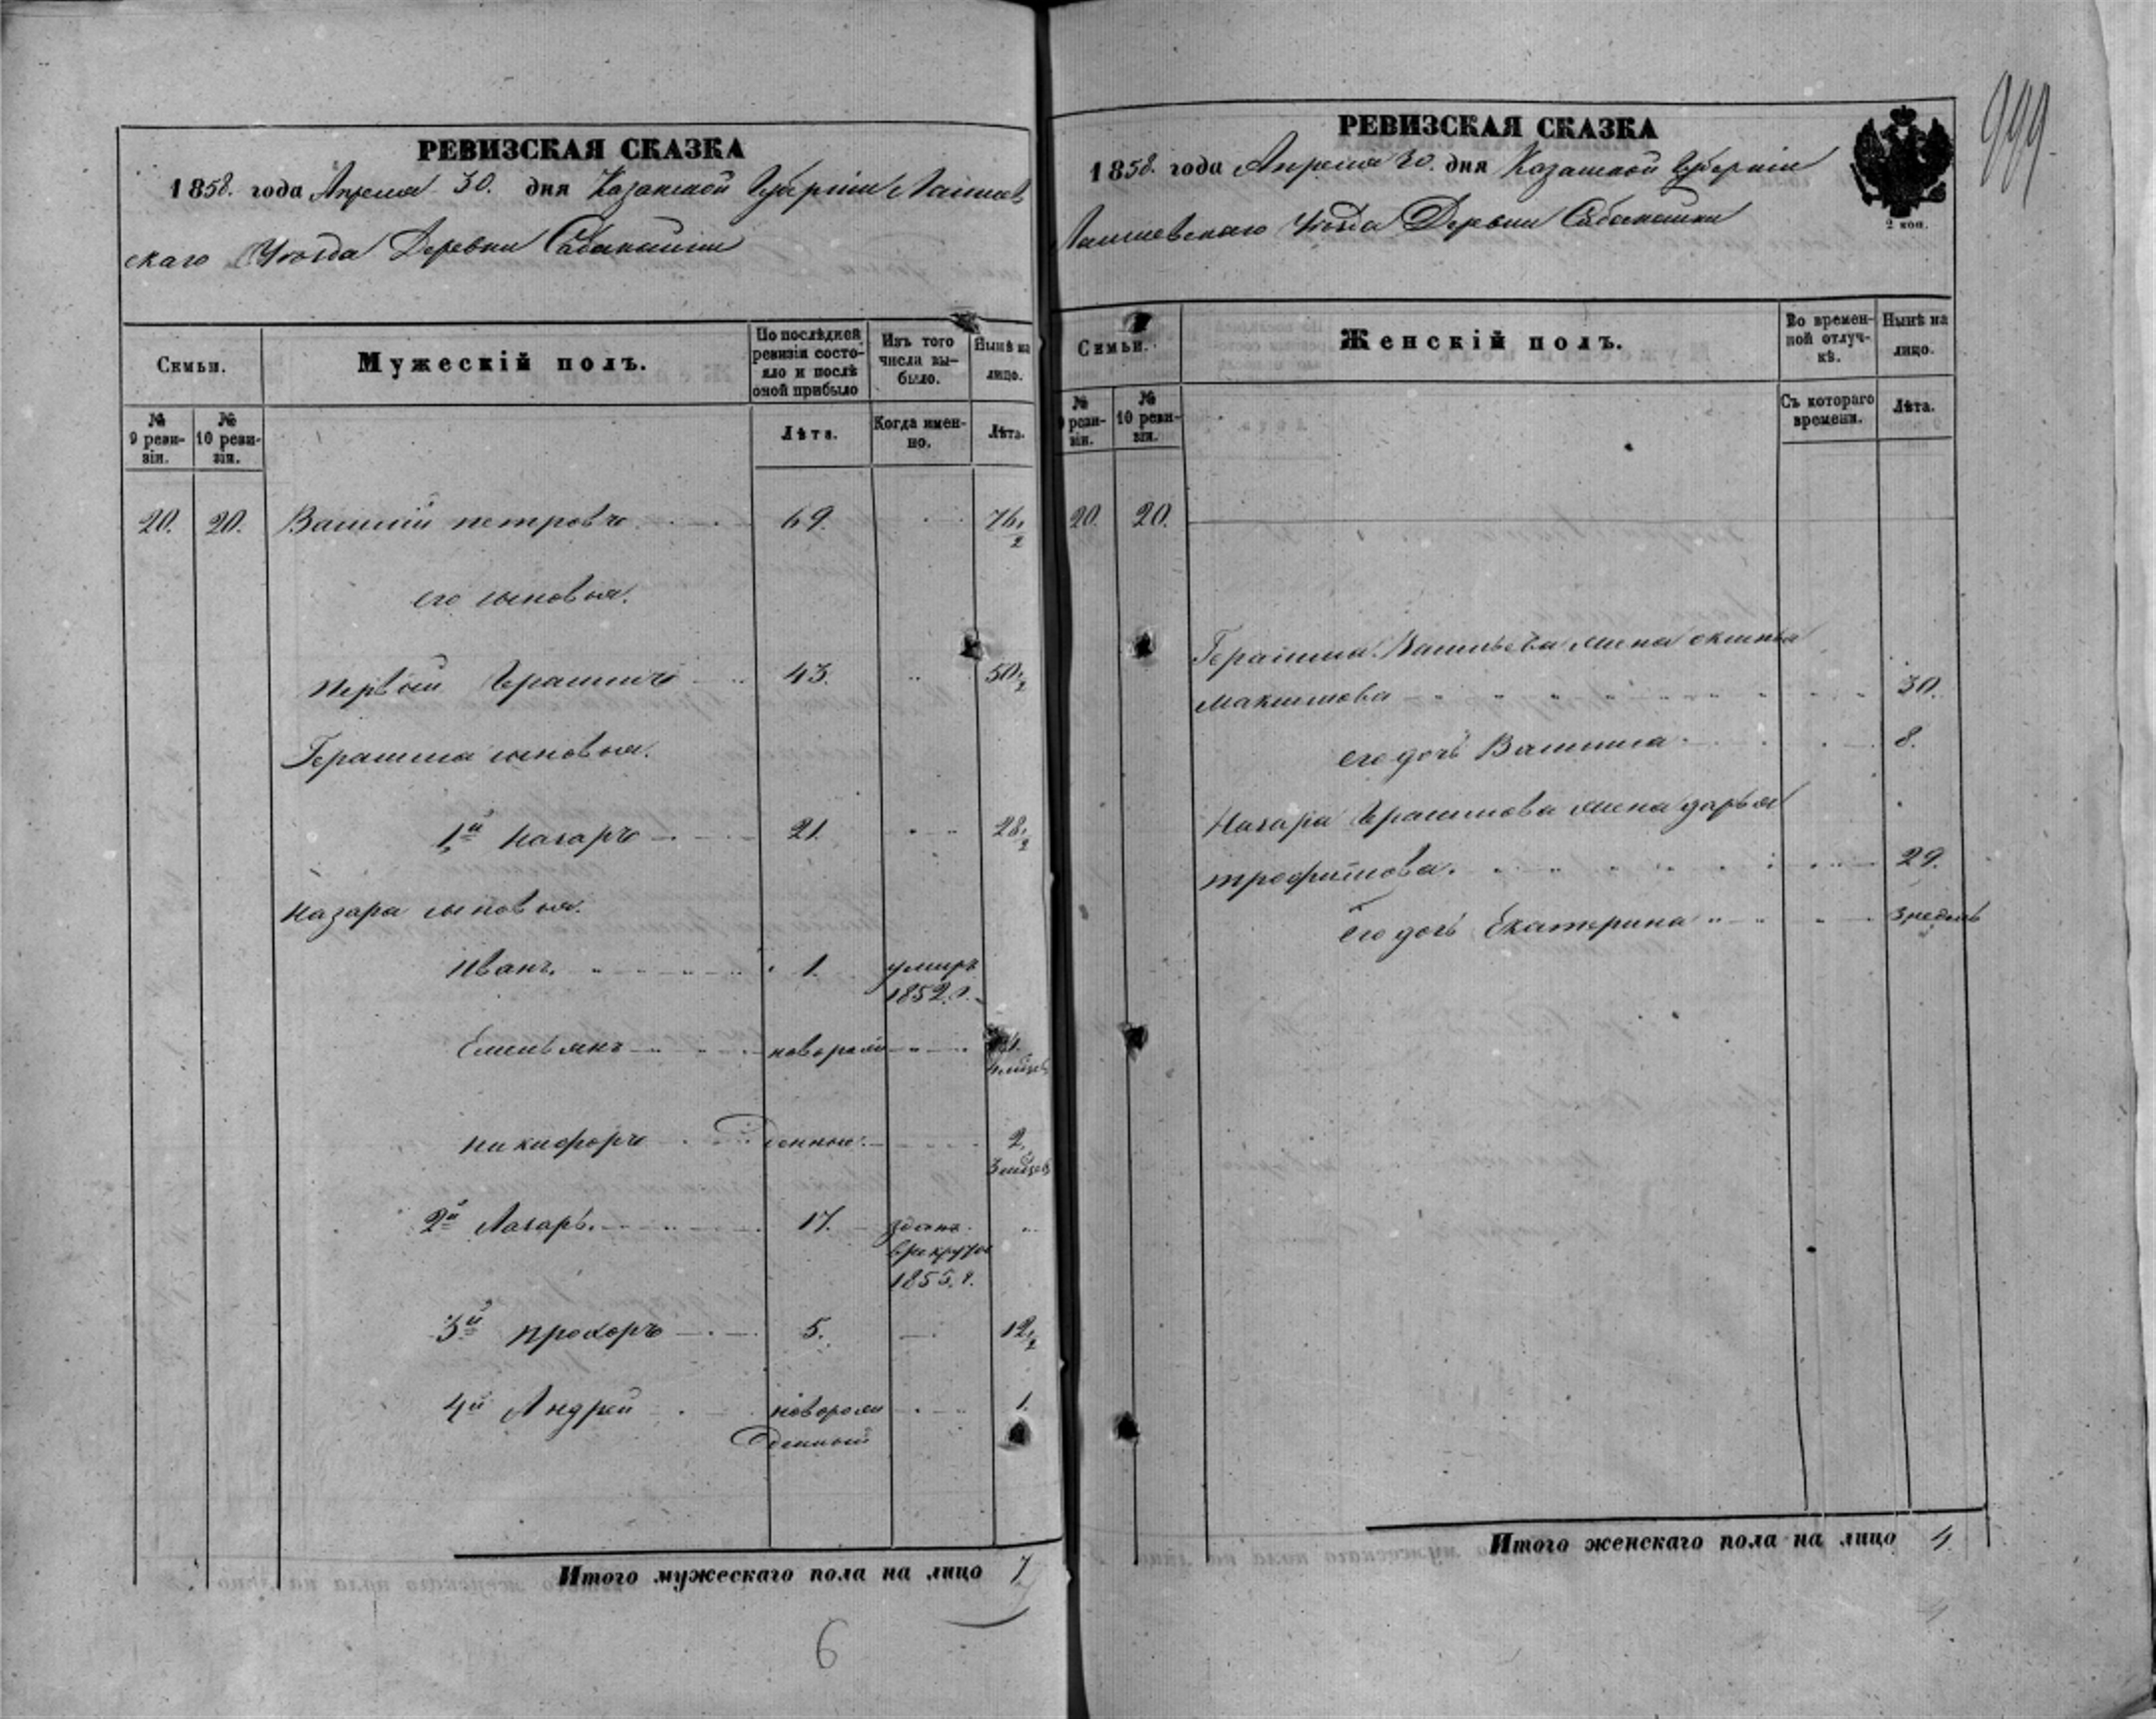 РЕВИЗСКАЯ СКАЗКА
1858. года Апреля 30. дня Казанской Губерніи Лаишев
скаго Уѣзда Деревни Сабакайки
Семьи.
Мужескій полъ.
По послѣдней ревизіи состояло и послѣ оной прибыло
Изъ того числа выбыло.
Нынѣ на лицо.
№ 9 ревизіи.
№ 10 ревизіи.
Лѣта.
Когда именно.
Лѣта.
20. 20. Василій петровъ 69. 76 1/2
его сыновья.
первый Герасимъ 43. 50 1/2
Герасима сыновья.
1й назаръ 21. 28 1/2
назара сыновья.
Иванъ 1. умеръ
1852. г.
Емельянъ новорож 11.
мѣсцевъ
никифоръ денные 2.
3 мѣсцев
2й Лазарь. 17. здан
в рекруты
1855. г.
3й прохоръ 5. 12 1/2
4й Андрей новорож 1.
денный
Итого мужескаго пола на лицо 7
6
РЕВИЗСКАЯ СКАЗКА
1858. года Апреля 30. дня Казанской Губерніи
Лаишевскаго Уѣзда Деревни Сабакайки
2 коп.
999
Семьи.
Женскій полъ.
Во временной отлучкѣ.
Нынѣ на лицо.
№ 9 ревизіи.
№ 10 ревизіи.
Съ котораго времени.
Лѣта.
20. 20.
Герасима Васильева жена
Максимова 30.
его дочь 8.
Назара Герасимова жена дарья
трофимова. 29.
его дочь Екатерина 3 недель
Итого женскаго пола на лицо 4